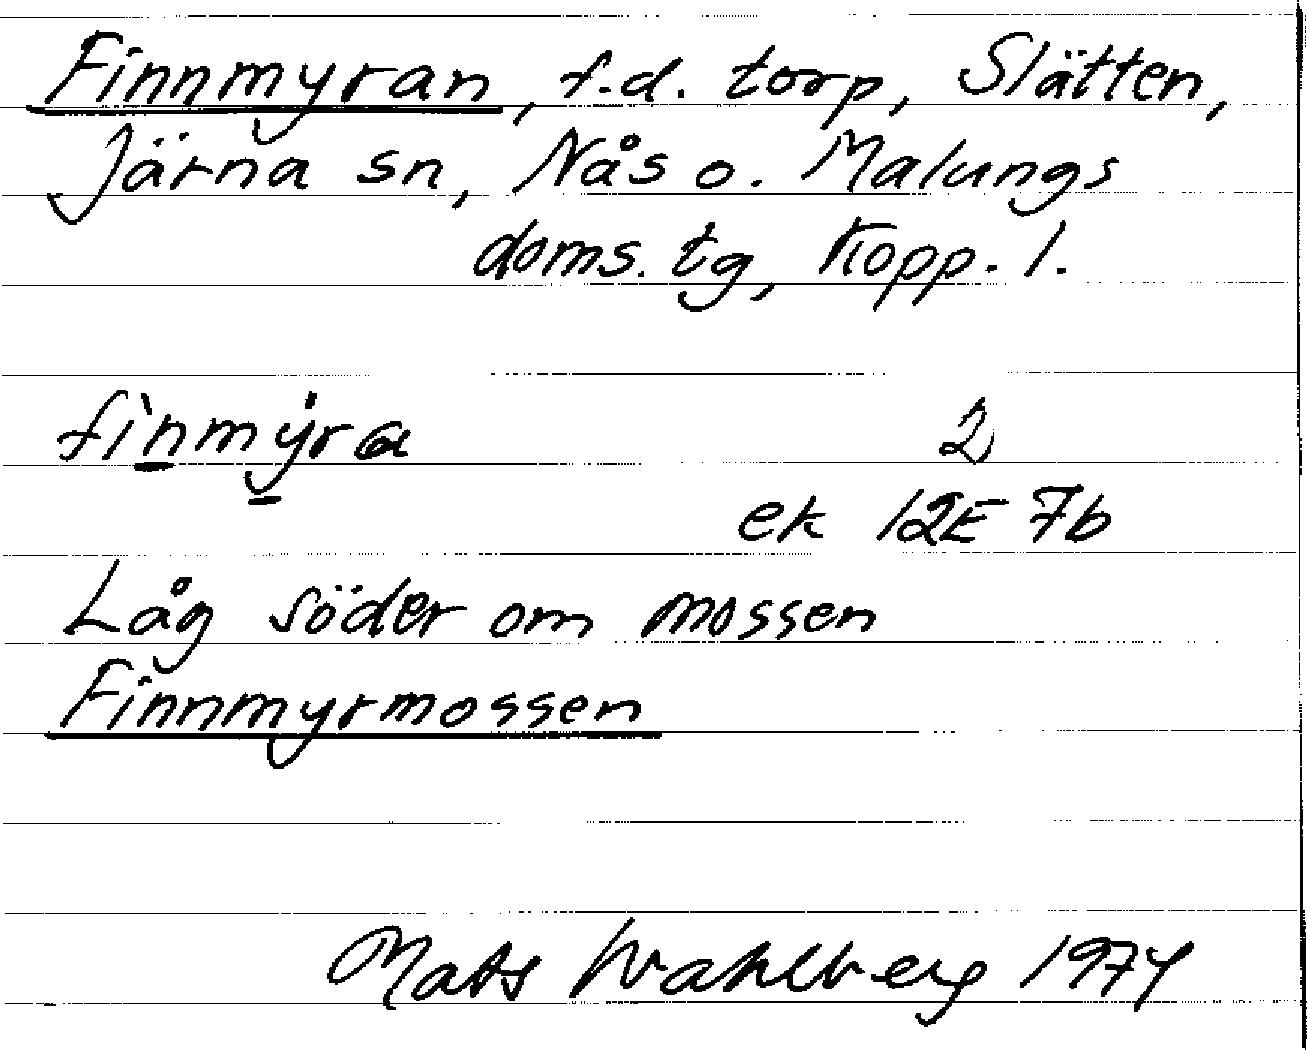 Finnmyran, f.d. torp, Slätten,
Järna sn, Nås o. Malungs
doms. tg, Kopp. l.
fìnmýra 2
ek 12E 7b
Låg söder om mossen
Finnmyrmossen
Mats Wahlberg 1974